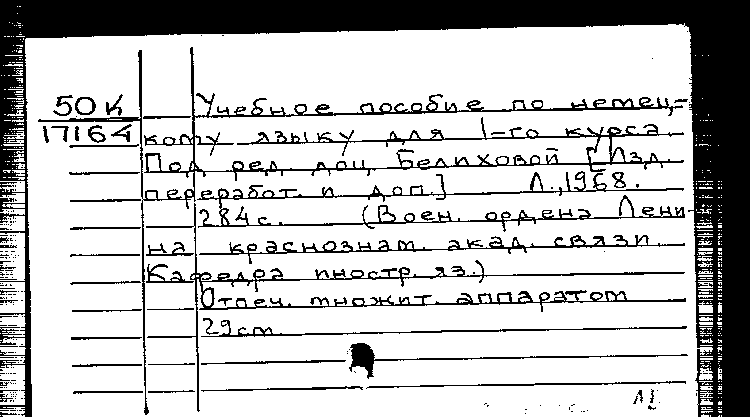 50 К
17164
Учебное пособие по немец-
кому языку для 1-го курса.
Под ред. доц. Белиховой [Изд.
переработ. и доп.] Л., 1968.
284 с. (Воен. ордена Лени-
на краснознам. акад. связи.
Кафедра иностр. яз.)
Отпеч. множит. аппаратом
29 см.